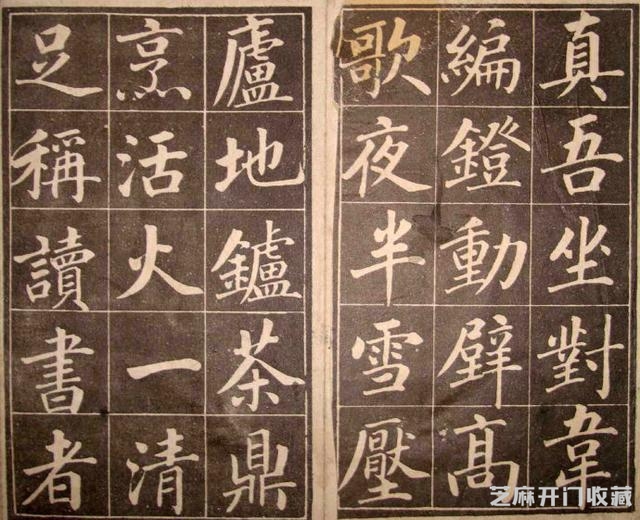 真吾坐對韋
編鐙動壁高
歌夜半雪壓
廬地鑪茶鼎
烹活火一清
足稱讀書者
芝麻开门收藏